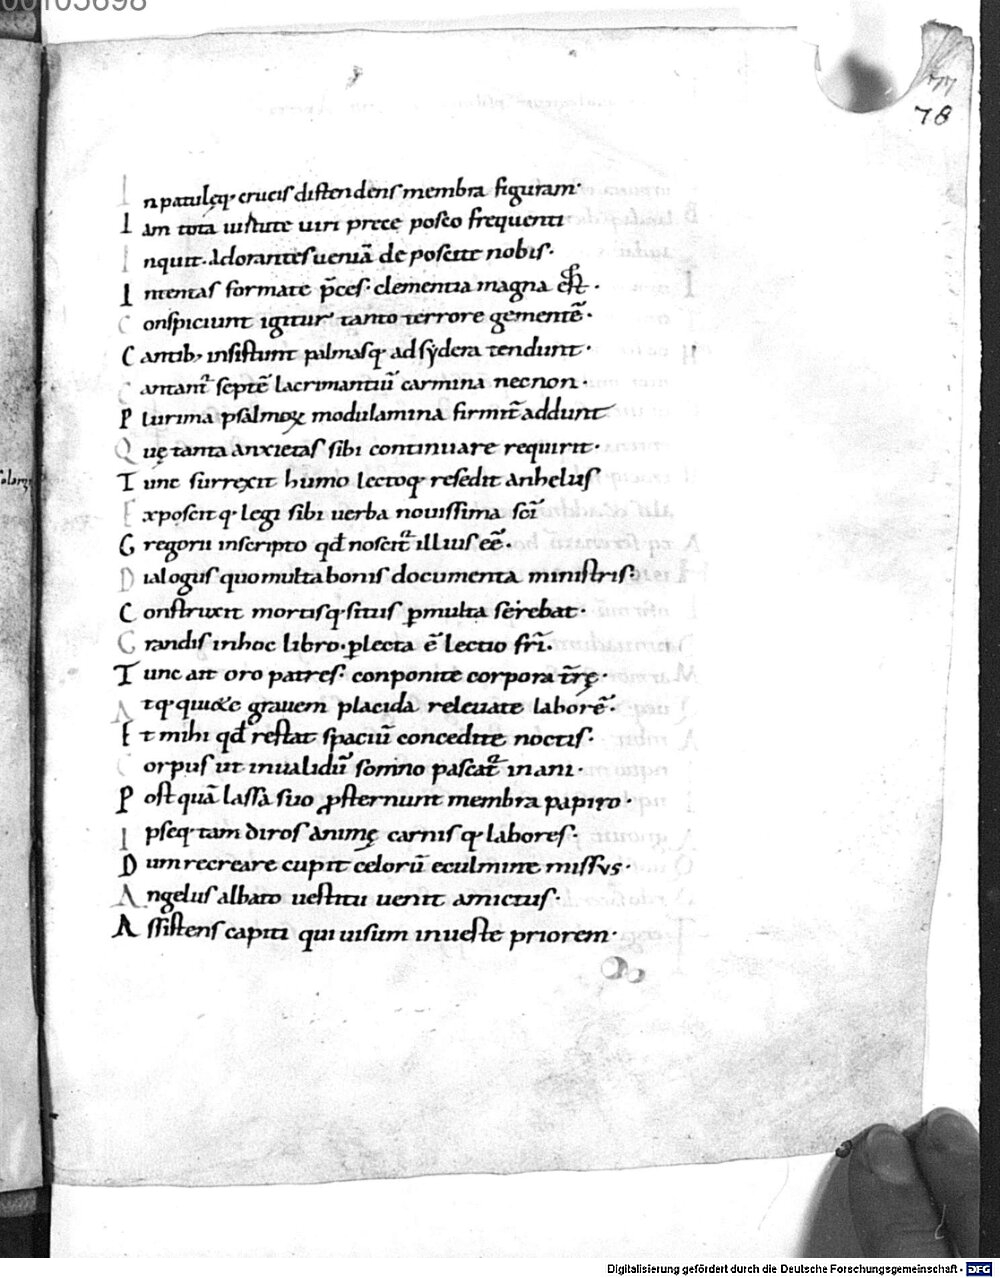 00105698
77
78
I n patulęq; crucis distendens membra figuram·
I am tota uirtute uiri prece posco frequenti
I nquit· Adorantes ueniā deposcite nobis·
I ntentas formate p̄ces· clementia magna est·
C onspiciunt igitur tanto terrore gementē·
C antib; insistunt palmasq; ad sẏdera tendunt·
C antant᷑ septē lacrimantiū carmina necnon·
P lurima psalmoꝝ modulamina firmit̄ addunt
Q uę tanta anxietas sibi continuare requirit·
T unc surrexit humo lectoq; resedit anhelus
E xposcit q; legi sibi uerba nouissima sc̄i
G regorii inscripto qđ noscit᷑ illius eē·
D ialogus quo multa bonis documenta ministris·
C onstruxit mortisq; situs ꝑmulta serebat·
G randis in hoc libro· ꝑlecta ē lectio fr̄i·
T unc ait oro patres· conponite corpora tr̄ę·
A tq; qui&e grauem placida releuate laborē·
E t mihi qđ restat spaciū concedite noctis·
C orpus ut inualidū somno pascat᷑ inani·
P ost quā lassa suo ꝓsternunt membra papiro·
I pseq; tam diros animę carnis q; labores·
D um recreare cupit celorū e culmine missus·
A ngelus albato uestitu uenit amictus·
A ssistens capiti qui uisum in ueste priorem·
Digitalisierung gefördert durch die Deutsche Forschungsgemeinschaft - DFG